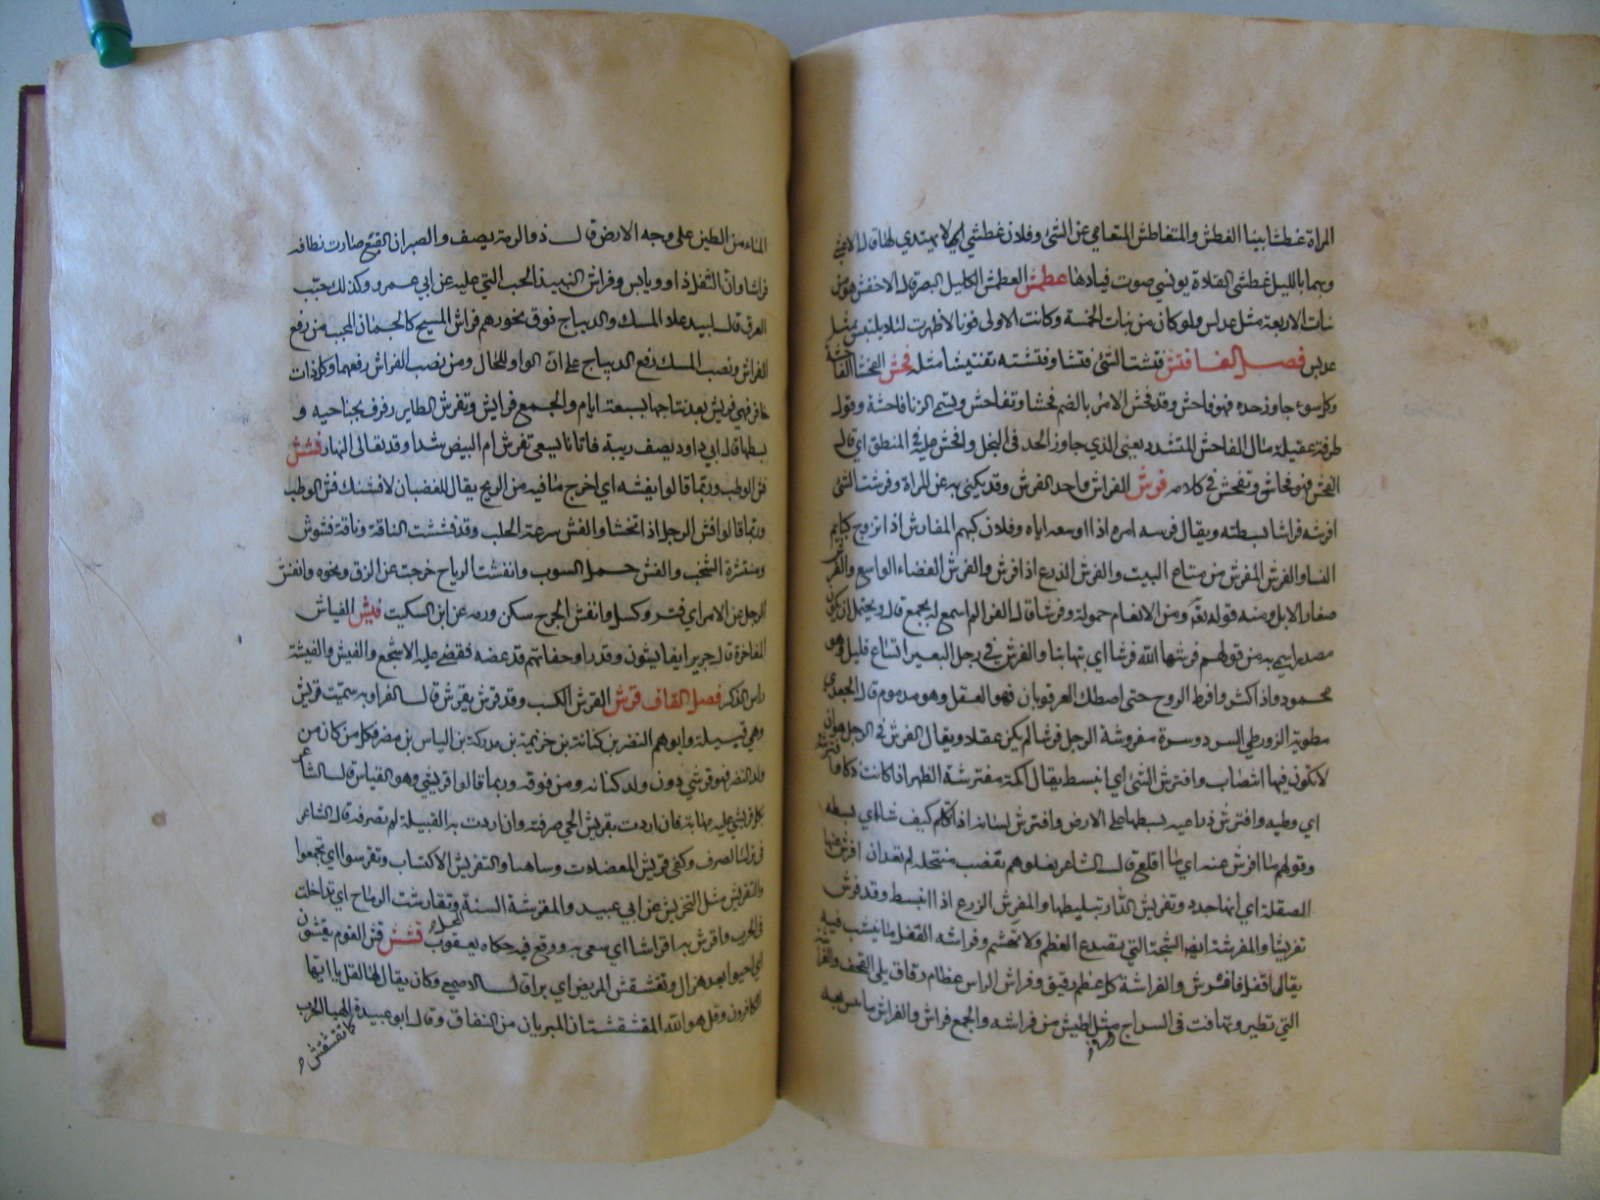 المراة غطشا بينا الغطش والمتغاطش المتعامي عن الشئ وفلان غطشي لا يهتدي لها قال الاعشي
وبهما بالليل غطشى الفلاة يونسي صوت فيادها عطمش العطمش الكليل البصر قال الاخفش هو من
بنات الاربعة مثل عدبس ولو كان من بنات الخمسة وكانت الاولى نونا لاظهرت لئلا يلتبس بمثل
عدبس فصل الفا فتش فتشت الشئ فتشا وفتشته تفتيشا مثله فحش الفحشا الفاحشة
وكل سوء جاوز حده فهو فاحش وقد فحش الامر بالضم فحشا وتفاحش ويسمى الزنا فاحشة وقول
طرفة عقيلة مال الفاحش المتشدد يعني الذي جاوز الحد في البخل وافحش عليه في المنطق اي قال
الفحش فهو فحاش وتفحش في كلامه فرش الفراش واحد الفرش وقد يكنى به عن المراة وفرشت الشئ
افرشه فراشا بسطته ويقال فرسه امره اذا اوسعه اياه وفلان كريم المفارش اذا تزوج كرايم
النسا والفرش المفرش من متاع البيت والفرش الزرع اذا افرش والفرش الفضاء الواسع والفرش
صغار الابل ومنه قوله تعالى ومن الانعام حمولة وفرشا قال الفرا لم اسمع له بجمع قال ويحتمل ان يكون
مصدرا سمي به من قولهم فرشها الله فرشا اي بثها بثا والفرش في رجل البعير اتساع قليل وهو
محمود واذا كثر وافرط الروح حتى اصطك العرقوبان فهو العقل وهو مذموم قال الجعدي
مطوية الزور طي البير دوسرة مفروشة الرجل فرشا لم يكن عقلا ويقال الفرش في الرجل هو ان
لا يكون فيها انتصاب وافترش الشئ اي انبسط يقال اكمة مفترشة الظهر اذا كانت دكا وافترشه
اي وطيه وافترش ذراعيه بسطهما على الارض وافترش لسانه اذا تكلم كيف شاء اي بسطه
وقولهم ما افرش عنه اي ما اقلع قال الشاعر نعلوهم بقضب منتخلة لم تعد ان افرش عنها
الصقلة اي انها جدد وتفريش الدار تبليطها والمفرش الزرع اذا انبسط وقد فرش
تفريشا والمفرشة ايضا الشجة التي تصدع العظم ولا تهشم وفراشه القفل ما ينشب فيه
يقال اقفل فافرش والفراشة كل عظم رقيق وفراش الراس عظام دقاق يلي القحف والفراشة
التي تطير وتهافت في السراج مثل اطيش من فراشه والجمع فراش والفراش ما يبس بعد
الماء من الطين على وجه الارض قال ذو الرمة يصف والصبران القيع صارت نطافه
فراشا وان الثقل ذاوو ويابس وفراش النبيذ الحبب التي عليه عن ابي عمرو وكذلك حبب
العرق قال لبيد علا المسك والديباج فوق نحورهم فراش المسيح كالجمان المحبب من رفع
الفراش ونصب المسك رفع الديباج على ان الواو للحال ومن نصب الفراش رفعهما وكل ذات
حافر فهي فريش بعد نتاجها بسبعة ايام والجمع فرايش وتفرش الطاير رفرف بجناحيه و
بسطها قال ابي داود يصف ربيئة فاتانا يسعى تفرش ام البيض شدا وقد تعالى النهار فشش
فش الوطب وربما قالوا فشه اي اخرج ما فيه من الريح يقال للغضبان لافشنك فش الوطب
وربما قالوا فش الرجل اذا تجشا والفش سرعة الحلب وقد فششت الناقة وناقة فشوش
ومنتشرة الشخب والفش حمل السوب وانفشت الرياح خرجت عن الزق ونحوه وانفش
الرجل عن الامر اي فتر وكسل وانفش الجرح سكن ورمه عن ابن السكيت فيش الفياش
المفاخرة قال جرير ايفايشون وقد راوحفاثهم قد عضه فقضى عليه الاشجع والفيش والفيشة
راس الذكر فصل القاف قرش القرش الكسب وقد قرش يقرش قال الفرا وبه سميت قريش
وهي قبيلة وابوهم النضر بن كنانة بن خزيمة بن مدركة بن الياس بن مضر فكل من كان من
ولد النضر فهو قرشي دون ولد كنانه ومن فوقه وربما قالوا قريشي وهو القياس قال الشاعر
بكل قريشي عليه مهابة فان اردت بقريش الحي صرفته وان اردت به القبيلة لم تصرفه قال الشاعر
في ترك الصرف وكفى قريش المعضلات وسادها والتقريش الاكتساب وتقرشوا اي تجمعوا
والتقريش مثل التحريش عن ابي عبيد والمقرشة السنة وتقارشت الرماح اي تداخلت
في الحرب واقرش به اقراشا اي سعى به ووقع فيه حكاه يعقوب قشش قش القوم يقشون
اي احيوا بعد هزال وتقشقش المريض اي برا قال الاصمعي وكان يقال لها القل يا ايها
الكافرون وقل هو الله المقشقشتان المبريان من النفاق وقال ابو عبيدة الهنا الجرب
كما تقشقش